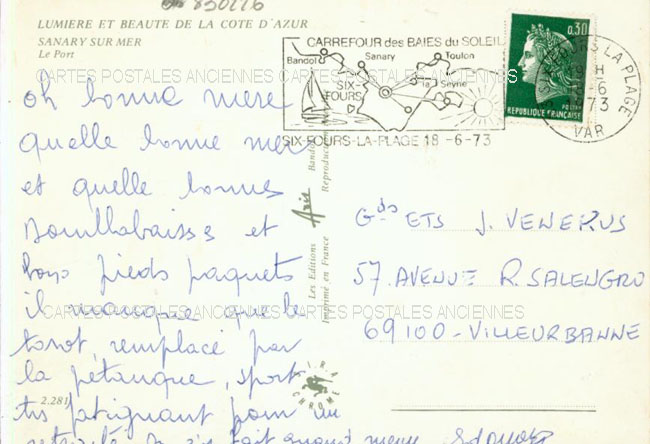 830226
LUMIERE ET BEAUTE DE LA COTE D'AZUR
SANARY SUR MER
Le Port
CARTES POSTALES ANCIENNES CARTES POSTALES ANCIENNES
oh bonne mere
quelle bonne mer
et quelle bonnes
Bouillabaisses et
bons pieds paquets
il manque que le
tarot, remplacé par
la pétanque, sport
très fatiguant pour un
retraité
2.281
CARREFOUR des BAIES du SOLEIL
Bandol
Sanary
Toulon
SIX-
FOURS
la Seyne
SIX-FOURS-LA-PLAGE 18-6-73
0,30
POSTES
REPUBLIQUE FRANÇAISE
SIX-FOURS LA PLAGE
H
-6
73
VAR
Les Editions Aris Bandol
Imprimé en France Reproduction
KRACHROME
Gds ETS J. VENERUS
57 AVENUE R. SALENGRO
69100-VILLEURBANNE
CARTES POSTALES ANCIENNES CARTES POSTALES ANCIENNES